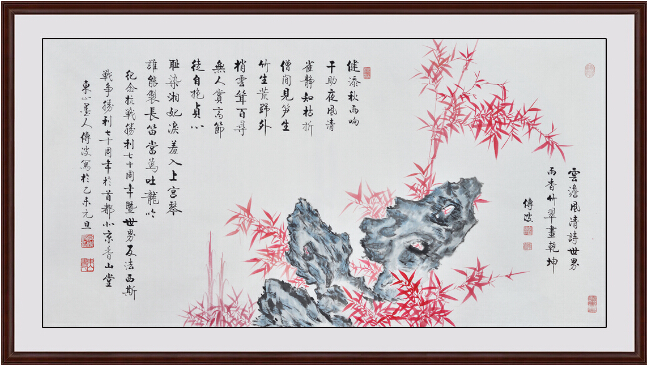 雲澹風清詩世界
雨香竹翠畫乾坤
傅波
健添秋雨响
干助夜風清
雀靜知枯折
僧閒見笋生
竹生荒野外
梢雲聳百尋
無人賞高節
徒自抱貞心
耻染湘妃淚羞入上宮琴
誰能製長笛當為吐龍吟
纪念抗戰勝利七十周年暨世界反法西斯
戰争勝利七十周年於首都北京香山堂
東山墨人傅波寫於乙未元旦